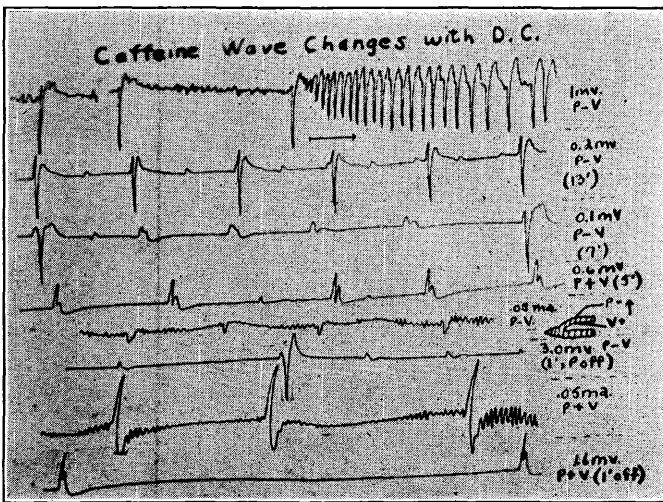 Caffeine Wave Changes with D.C.
1mv.
P-V
0.2mv
P-V
(13')
0.1mV
P-V
(7')
0.6mv
P+V (5')
.05ma.
P-V.
P-↑
V+
3.0mv P-V
(1', P off)
.05ma.
P+V
1.6mv.
P+V (1' off)